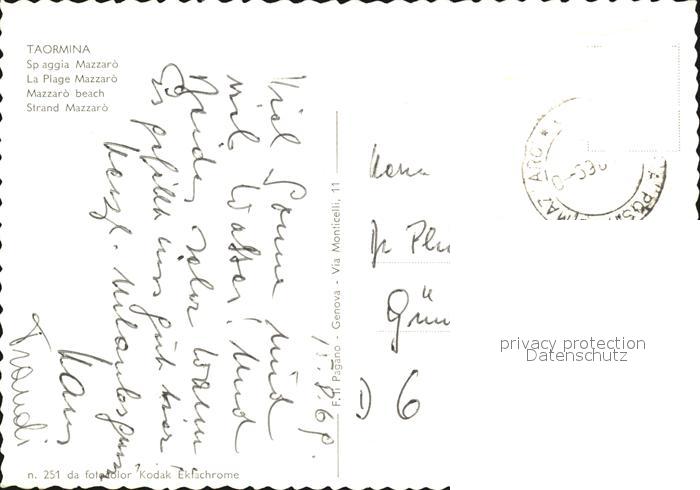 TAORMINA
Spiaggia Mazzarò
La Plage Mazzarò
Mazzarò beach
Strand Mazzarò
Viel Sonne und
viel Wasser! Und
beides sehr warm!
Es gefällt uns gut hier!
Herzl. Urlaubsgrüße
Hans
Traudi
F.lli Pagano - Genova - Via Monticelli, 11
D 6
privacy protection
Datenschutz
n. 251 da fotocolor Kodak Ektachrome